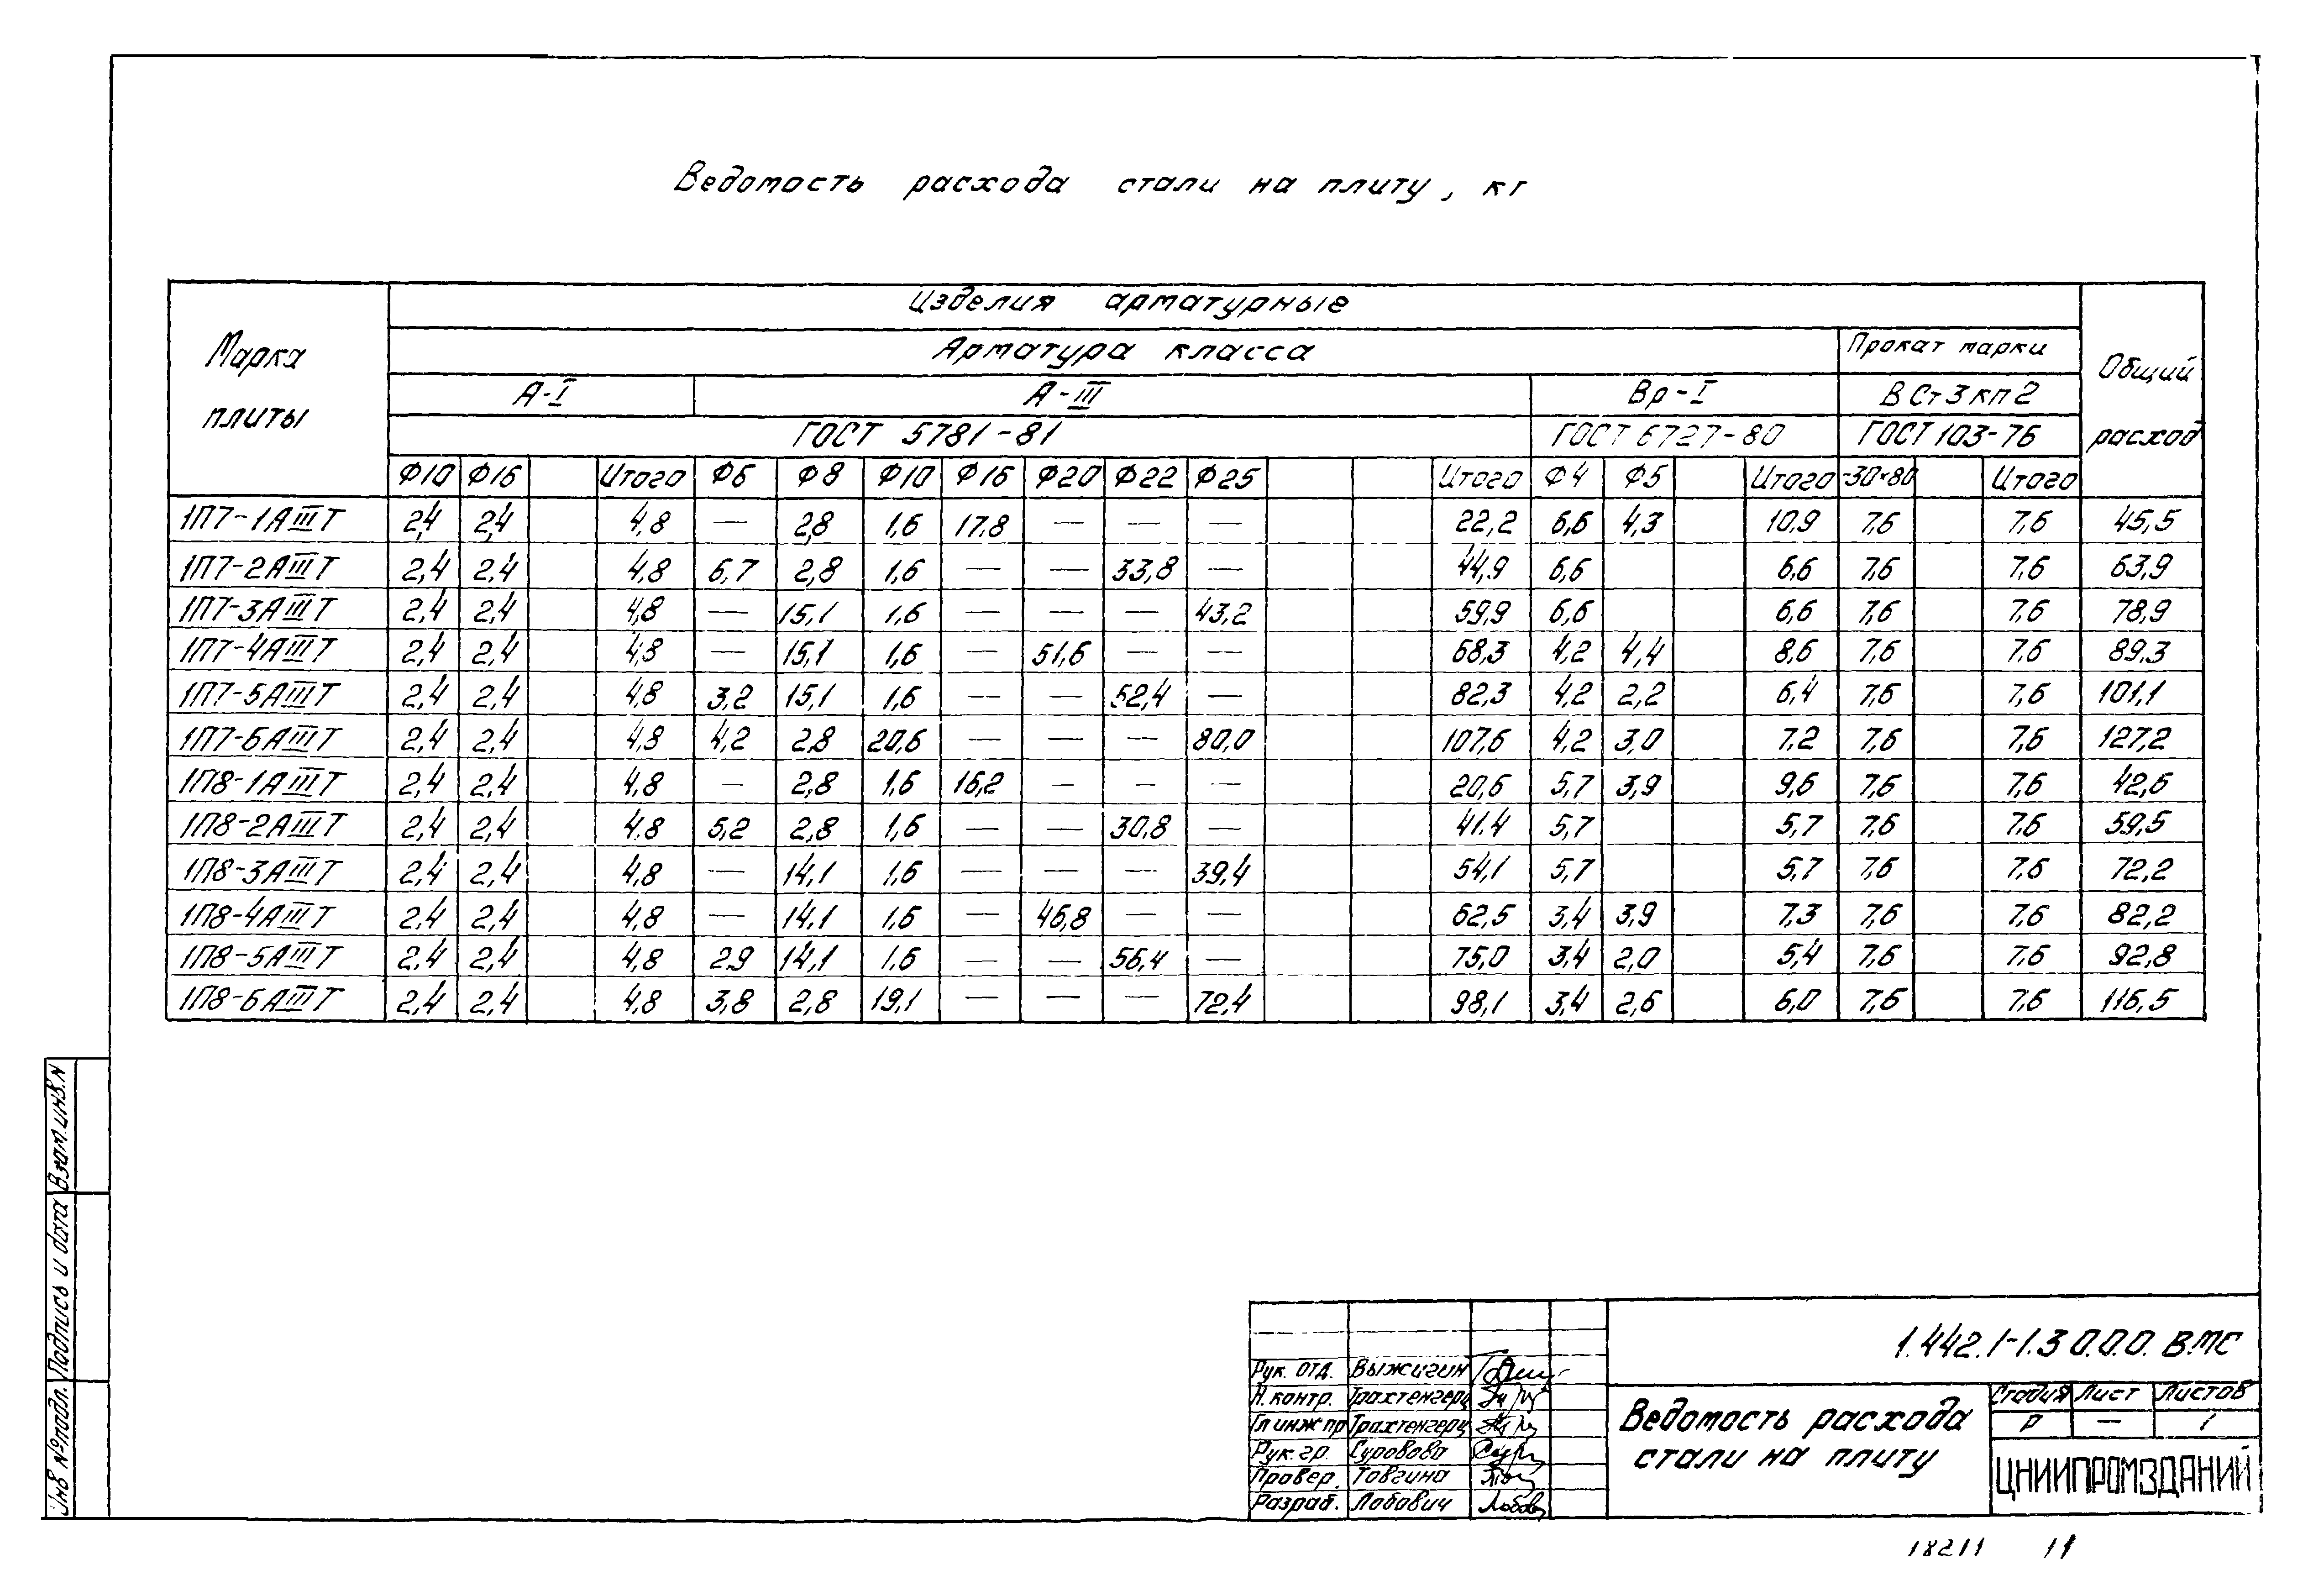 Ведомость расхода стали на плиту, кг
Марка плиты
Изделия арматурные
Общий расход
Арматура класса
Прокат марки
А-I А-III Вр-I ВСт3кп2
ГОСТ 5781-81 ГОСТ 6727-80 ГОСТ 103-76
Ф10 Ф16 Итого Ф6 Ф8 Ф10 Ф16 Ф20 Ф22 Ф25 Итого Ф4 Ф5 Итого -30×80 Итого
1П7-1АIIIТ 2,4 2,4 4,8 — 2,8 1,6 17,8 — — — 22,2 6,6 4,3 10,9 7,6 7,6 45,5
1П7-2АIIIТ 2,4 2,4 4,8 6,7 2,8 1,6 — — 33,8 — 44,9 6,6 6,6 7,6 7,6 63,9
1П7-3АIIIТ 2,4 2,4 4,8 — 15,1 1,6 — — — 43,2 59,9 6,6 6,6 7,6 7,6 78,9
1П7-4АIIIТ 2,4 2,4 4,8 — 15,1 1,6 — 51,6 — — 68,3 4,2 4,4 8,6 7,6 7,6 89,3
1П7-5АIIIТ 2,4 2,4 4,8 3,2 15,1 1,6 — — 62,4 — 82,3 4,2 2,2 6,4 7,6 7,6 101,1
1П7-6АIIIТ 2,4 2,4 4,8 4,2 2,8 20,6 — — — 80,0 107,6 4,2 3,0 7,2 7,6 7,6 127,2
1П8-1АIIIТ 2,4 2,4 4,8 — 2,8 1,6 16,2 — — — 20,6 5,7 3,9 9,6 7,6 7,6 42,6
1П8-2АIIIТ 2,4 2,4 4,8 5,2 2,8 1,6 — — 30,8 — 41,4 5,7 5,7 7,6 7,6 59,5
1П8-3АIIIТ 2,4 2,4 4,8 — 14,1 1,6 — — — 39,4 54,1 5,7 5,7 7,6 7,6 72,2
1П8-4АIIIТ 2,4 2,4 4,8 — 14,1 1,6 — 46,8 — — 62,5 3,4 3,9 7,3 7,6 7,6 82,2
1П8-5АIIIТ 2,4 2,4 4,8 2,9 14,1 1,6 — — 56,4 — 75,0 3,4 2,0 5,4 7,6 7,6 92,8
1П8-6АIIIТ 2,4 2,4 4,8 3,8 2,8 19,1 — — — 72,4 98,1 3,4 2,6 6,0 7,6 7,6 116,5
Взам.инв.N
Подпись и дата
Инв №подл.
1.442.1-1.3 0.0.0. ВМС
Рук. отд. Выжигин
Н.контр. Трахтенгерц
Гл инж пр Трахтенгерц
Рук. гр. Суровова
Провер. Товгина
Разраб. Лобович
Ведомость расхода
стали на плиту
Стадия Лист Листов
Р — 1
ЦНИИПРОМЗДАНИЙ
18211 11